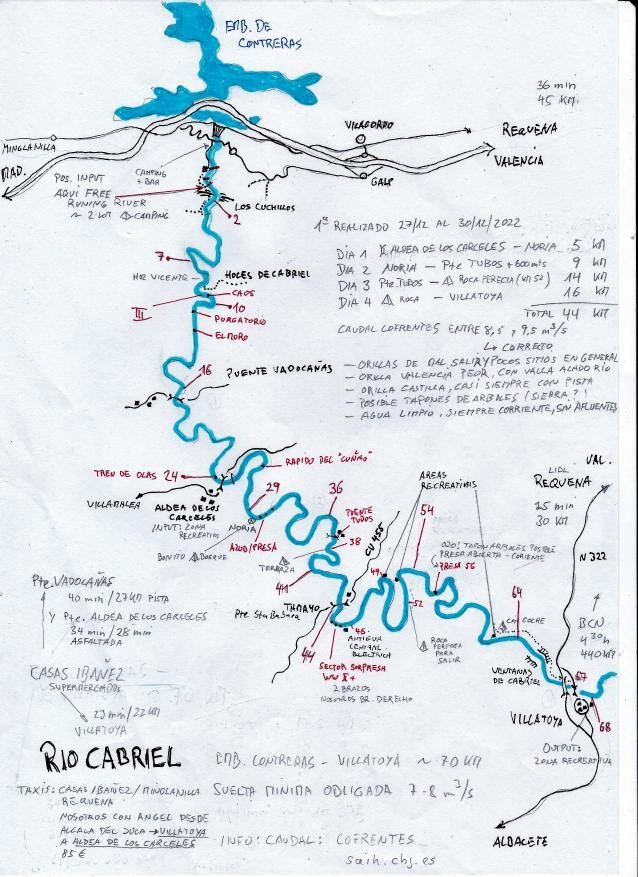 EMB. DE
CONTRERAS
36 min
45 KM.
MINGLANILLA
MAD.
VILLAGORDO
REQUENA
VALENCIA
GALP
CAMPING
+ BAR
POS. INPUT
AQUI FREE
RUNING RIVER
~ 2 KM CAMPING
LOS CUCHILLOS
2
7
HOZ VICENTE
HOCES DE CABRIEL
CAOS
III
10
PURGATORIO
EL MORO
1ª REALIZADO 27/12 AL 30/12/2022
DIA 1 ALDEA DE LOS CARCELES - NORIA 5 KM
DIA 2 NORIA - Pte TUBOS + 600 mts 9 KM
DIA 3 Pte TUBOS - ROCA PERFECTA (KM 52) 14 KM
DIA 4 ROCA - VILLATOYA 16 KM
TOTAL 44 KM
CAUDAL COFRENTES ENTRE 8,5 y 9,5 m³/s
↳ CORRECTO
- ORILLAS DE MAL SALIR Y POCOS SITIOS EN GENERAL
- ORILLA VALENCIA PEOR, CON VALLA AL LADO RIO
- ORILLA CASTILLA, CASI SIEMPRE CON PISTA
- POSIBLE TAPONES DE ARBOLES (SIERRA?)
- AGUA LIMPIO, SIEMPRE CORRIENTE, SIN AFLUENTES
16
PUENTE VADOCAÑAS
TREN DE OLAS 24
RAPIDO DEL "CUÑAO"
VILLAMALEA
ALDEA DE LOS
CARCELES
INPUT: ZONA
RECREATIVA
29
NORIA
AZUD/PRESA
BONITO BOSQUE
36
PUENTE
TUBOS
38
TERRAZA
41
CV 455
AREAS
RECREATIVAS
54
OJO! TAPON ARBOLES POSIBLE
PRESA ABIERTA - CORIENTE
PRESA 56
49
52
ROCA
PERFECTA
PARA
SALIR
64
CON COCHE
VENTANAS
DE CABRIEL
VAL.
LIDL
REQUENA
25 min
30 KM
N 322
BCN
4 30h
440 KM
67
68
VILLATOYA
OUTPUT:
ZONA RECREATIVA
ALBACETE
TAMAYO
Pte Sta Barbara
44
46
ANTIGUA
CENTRAL
ELECTRICA
SECTOR SORPRESA
WW II+
2 BRAZOS
NOSOTROS BR. DERECHO
Pte. VADOCAÑAS
40 min / 27 KM PISTA
Y Pte. ALDEA DE LOS CARCELES
34 min / 28 min
ASFALTADA
CASAS IBAÑEZ
SUPERMERCADOS
23 min / 22 KM
VILLATOYA
RIO CABRIEL
EMB. CONTRERAS - VILLATOYA ~ 70 KM
SUELTA MINIMA OBLIGADA 7-8 m³/s
TAXIS: CASAS IBAÑEZ / MINGLANILLA
REQUENA
NOSOTROS CON ANGEL DESDE
ALCALA DEL JUCA → VILLATOYA
A ALDEA DE LOS CARCELES
85 €
INFO: CAUDAL: COFRENTES
saih.chj.es